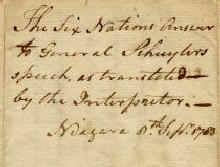 The Six Nations Answer
to General Schuylers
speech, as translated
by the Interpretor.
Niagara 8th Sept. 1783